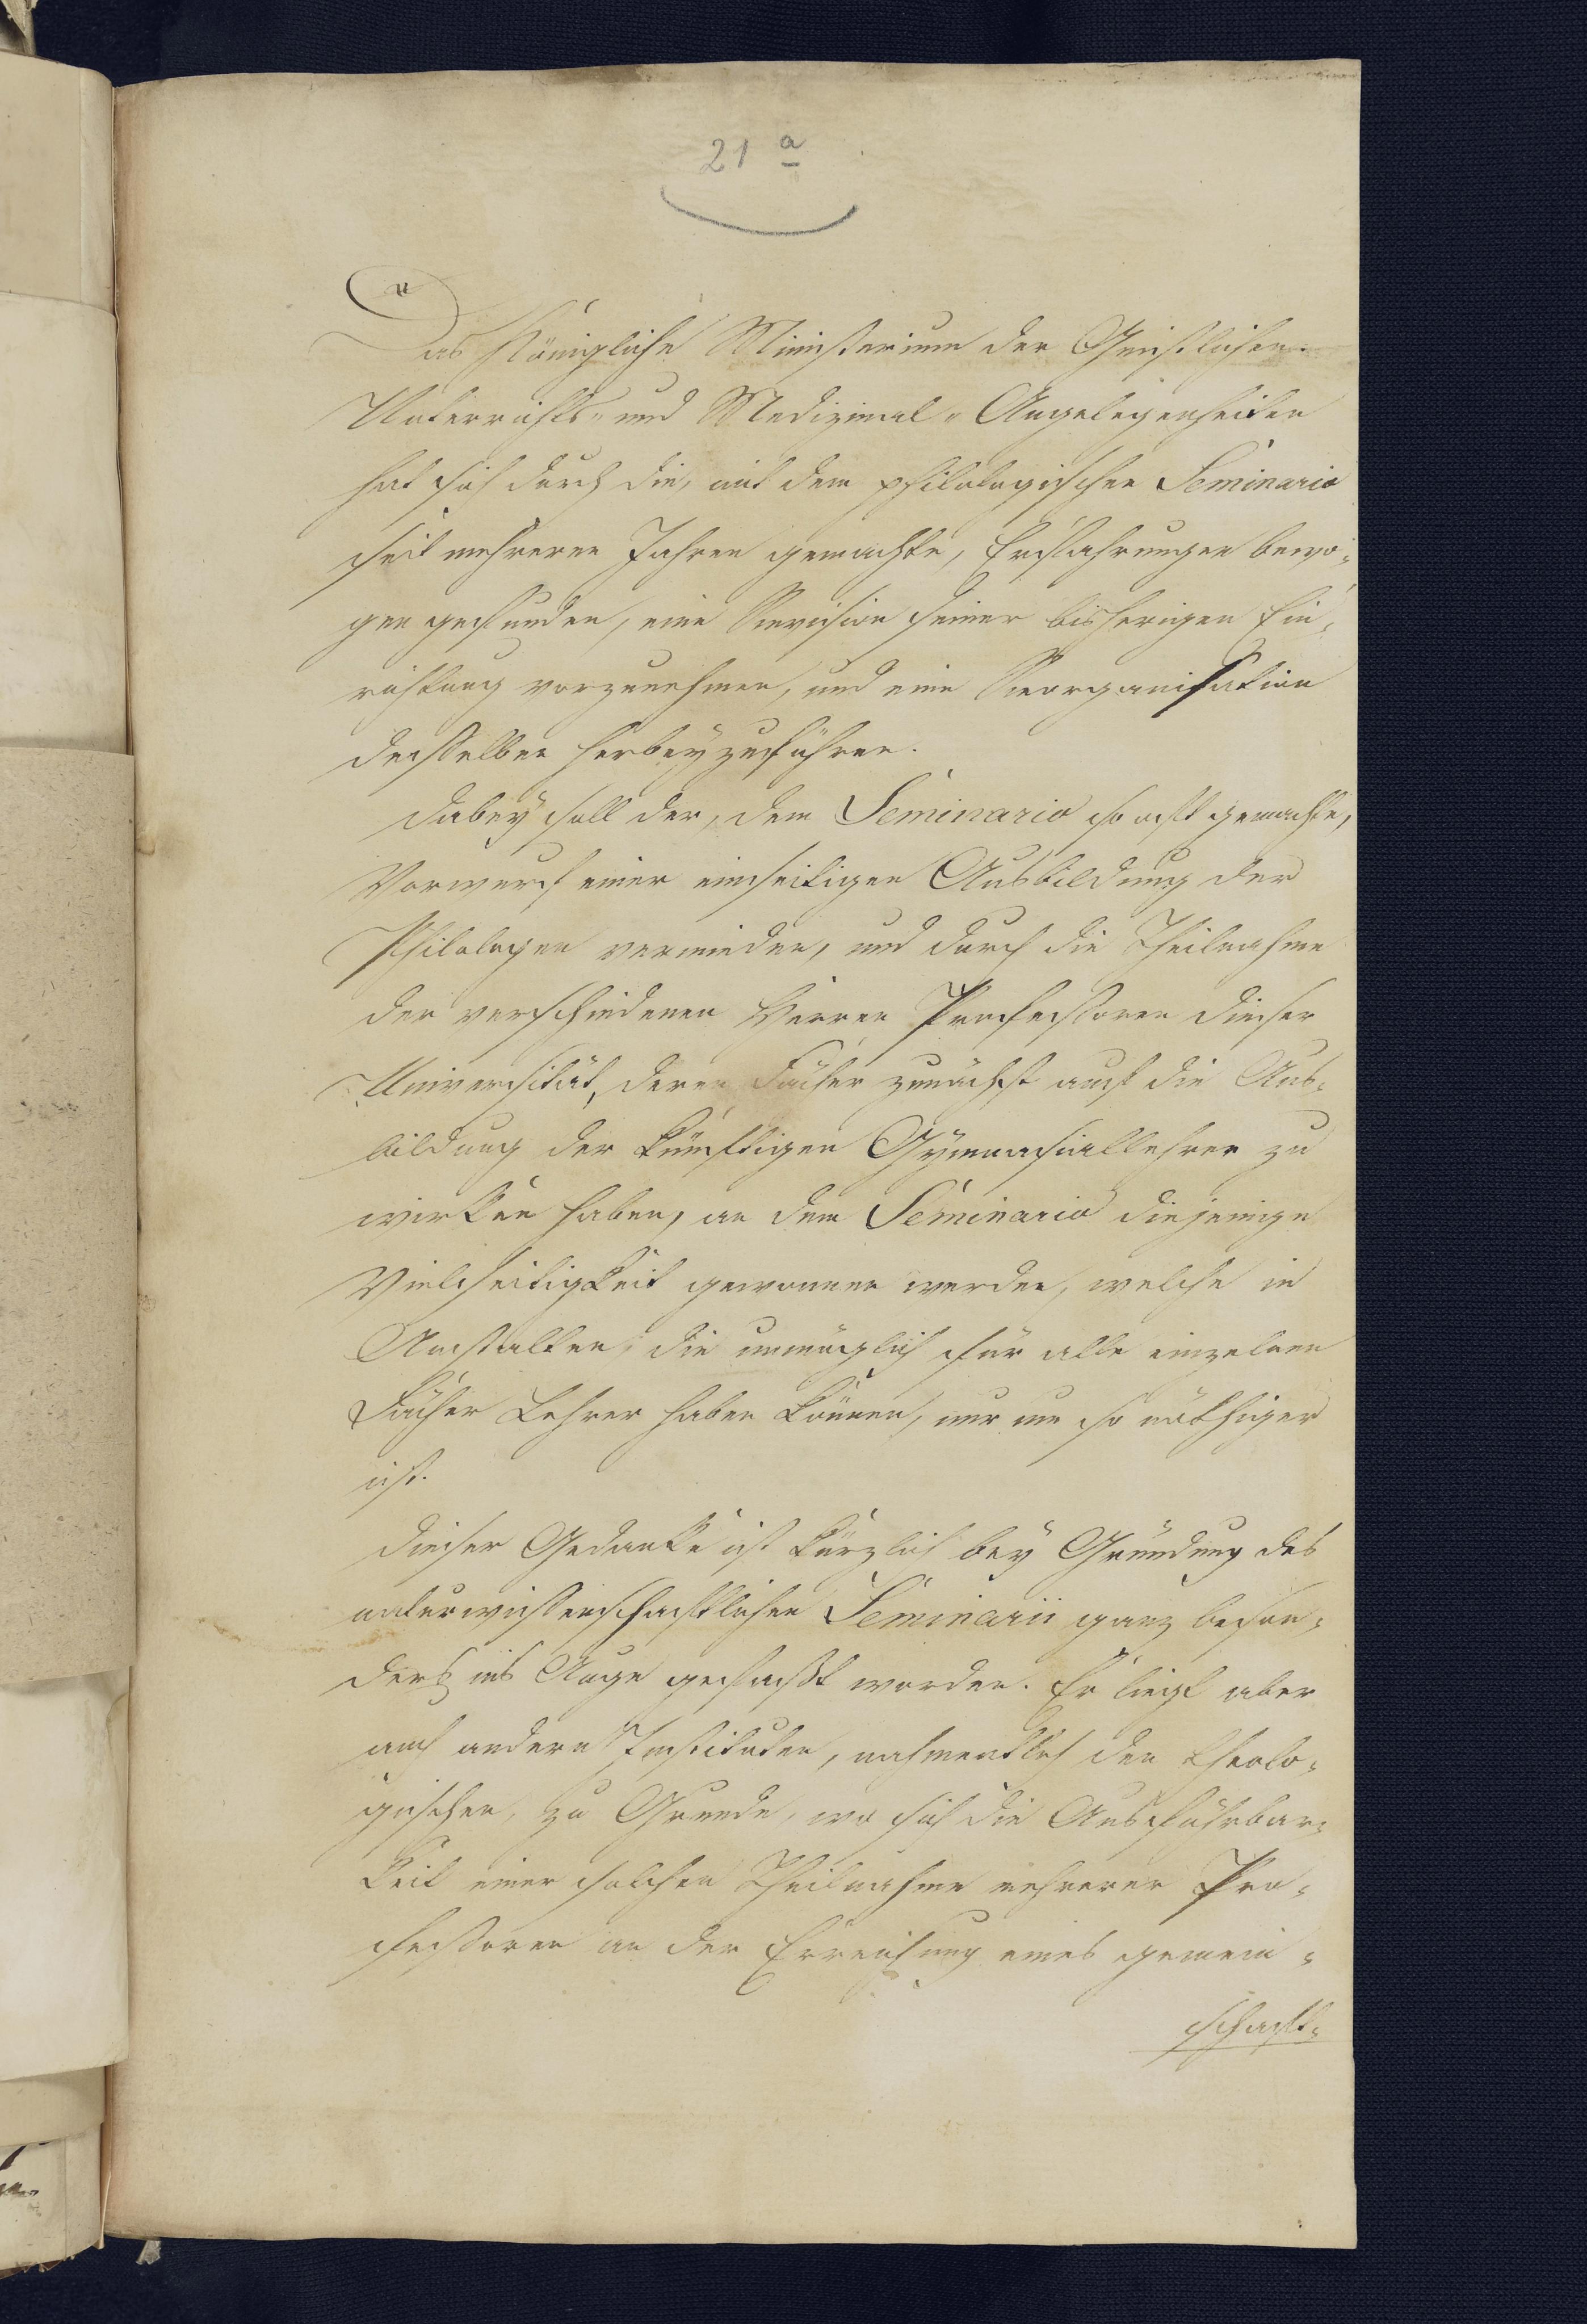 21 a
Das Königliche Ministerium der Geistlichen-
Unterrichts- und Medizinal-Angelegenheiten
hat sich durch die, mit dem philologischen Seminario
seit mehreren Jahren gemachte, Erfahrungen bewo-
gen gefunden, eine Revision seiner bisherigen Ein-
richtung vorzunehmen, und eine Reorganisation
desselben herbeyzuführen.
Dabey soll der, dem Seminario so oft gemachte,
Vorwurf einer einseitigen Ausbildung der
Philologen vermieden, und durch die Theilnahme
der verschiedenen Herren Professoren dieser
Universität, deren Fächer zunächst auf die Aus-
bildung der künftigen Gymnasiallehrer zu
wirken haben, an dem Seminario diejenige
Vielseitigkeit gewonnen werden, welche in
Anstalten, die unmöglich für alle einzelnen
Fächer Lehrer haben können, nur um so nöthiger
ist.
Dieser Gedanke ist kürzlich bey Gründung des
naturwissenschaftlichen Seminarii ganz beson-
ders ins Auge gefaßt worden. Er liegt aber
auch andern Instituten, nahmentlich den theolo-
gischen, zu Grunde, wo sich die Ausführbar-
keit einer solchen Theilnahme mehrerer Pro-
fessoren an der Erreichung eines gemein-
schaft-